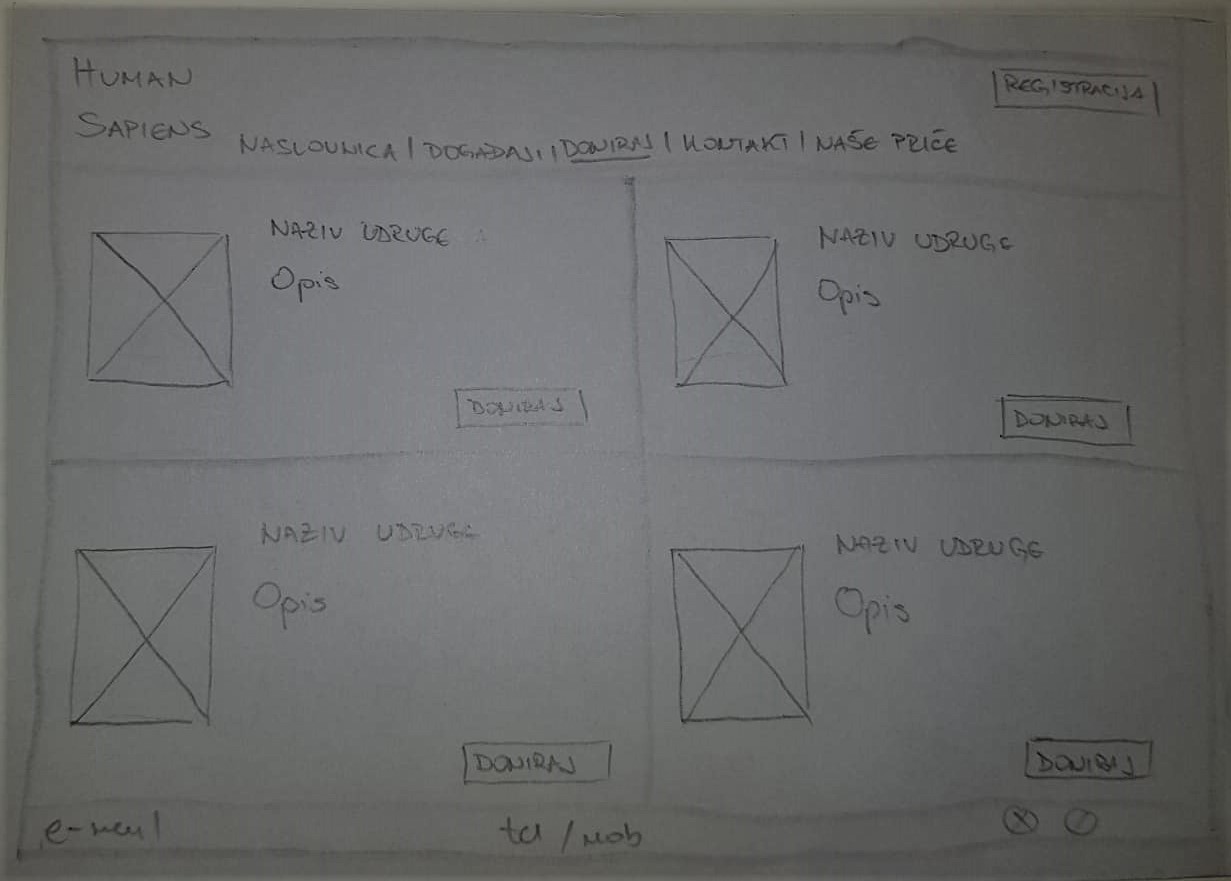 HUMAN
SAPIENS
REGISTRACIJA
NASLOVNICA | DOGAĐAJI | DONIRAJ | KONTAKT | NAŠE PRIČE
NAZIV UDRUGE
Opis
DONIRAJ
NAZIV UDRUGE
Opis
DONIRAJ
NAZIV UDRUGE
Opis
DONIRAJ
NAZIV UDRUGE
Opis
DONIRAJ
e-mail
tel / mob